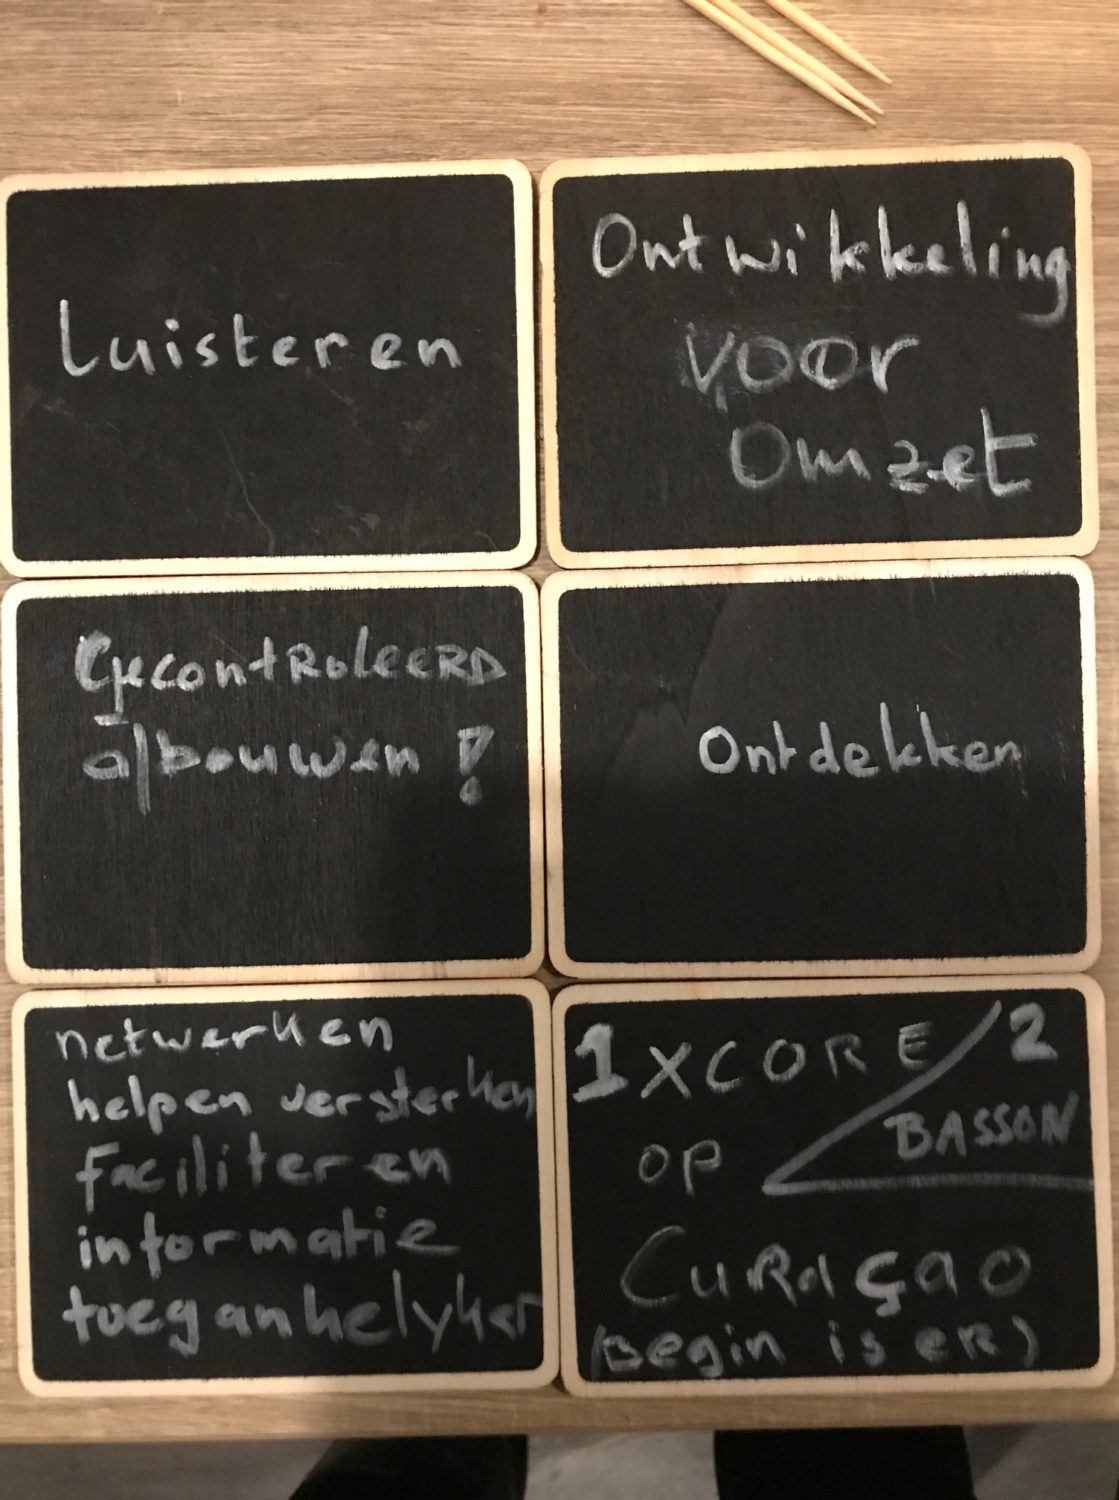 Luisteren
Ontwikkeling
voor
Omzet
GecontROleeRD
afbouwen !
Ontdekken
netwerken
helpen versterken
faciliteren
informatie
toeganhelyker
1 XCORE / 2
BASSON
op
CuRaçao
(Begin is eR)